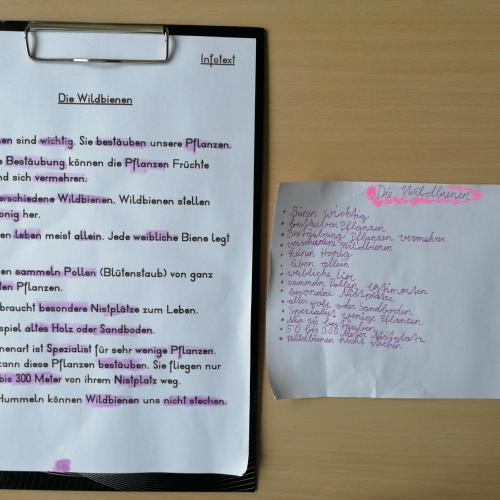 Infotext
Die Wildbienen
en sind wichtig. Sie bestäuben unsere Pflanzen.
e Bestäubung können die Pflanzen Früchte
nd sich vermehren.
erschiedene Wildbienen. Wildbienen stellen
onig her.
en leben meist allein. Jede weibliche Biene legt
en sammeln Pollen (Blütenstaub) von ganz
ten Pflanzen.
braucht besondere Nistplätze zum Leben.
spiel altes Holz oder Sandboden.
nenart ist Spezialist für sehr wenige Pflanzen.
kann diese Pflanzen bestäuben. Sie fliegen nur
bis 300 Meter von ihrem Nistplatz weg.
Hummeln können Wildbienen uns nicht stechen.
Die Wildbienen
• Bienen wichtig
• bestäuben Pflanzen
• Bestäubung Pflanzen vermehren
• verschiedene Wildbienen
• keinen Honig
• leben allein
• weibliche
• sammeln Pollen bestimmten
• besondere Nistplätze
• altes Holz oder Sandboden
• Spezialist wenige Pflanzen
• Nur sie bestäuben
• 50 bis 300 Meter Nistplatz
• Wildbienen nicht stechen